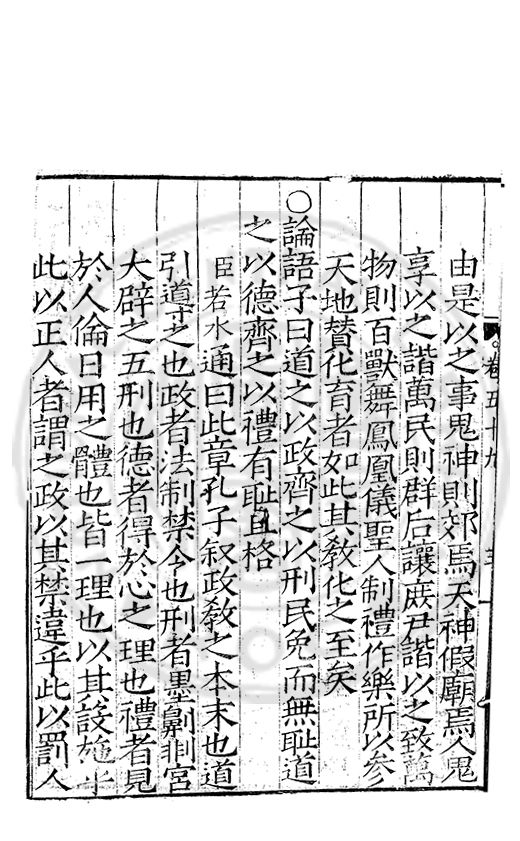 卷五十九
由是以之事鬼神則郊焉天神假廟焉人鬼
享以之諧萬民則群后讓庶尹諧以之致萬
物則百獸舞鳳凰儀聖人制禮作樂所以參
天地賛化育者如此其敎化之至矣
○論語子曰道之以政齊之以刑民免而無耻道
之以德齊之以禮有耻且格
臣若水通曰此章孔子叙政敎之本末也道
引導之也政者法制禁令也刑者墨劓剕宮
大辟之五刑也德者得於心之理也禮者見
於人倫日用之體也皆一理也以其設施乎
此以正人者謂之政以其禁違乎此以罰人